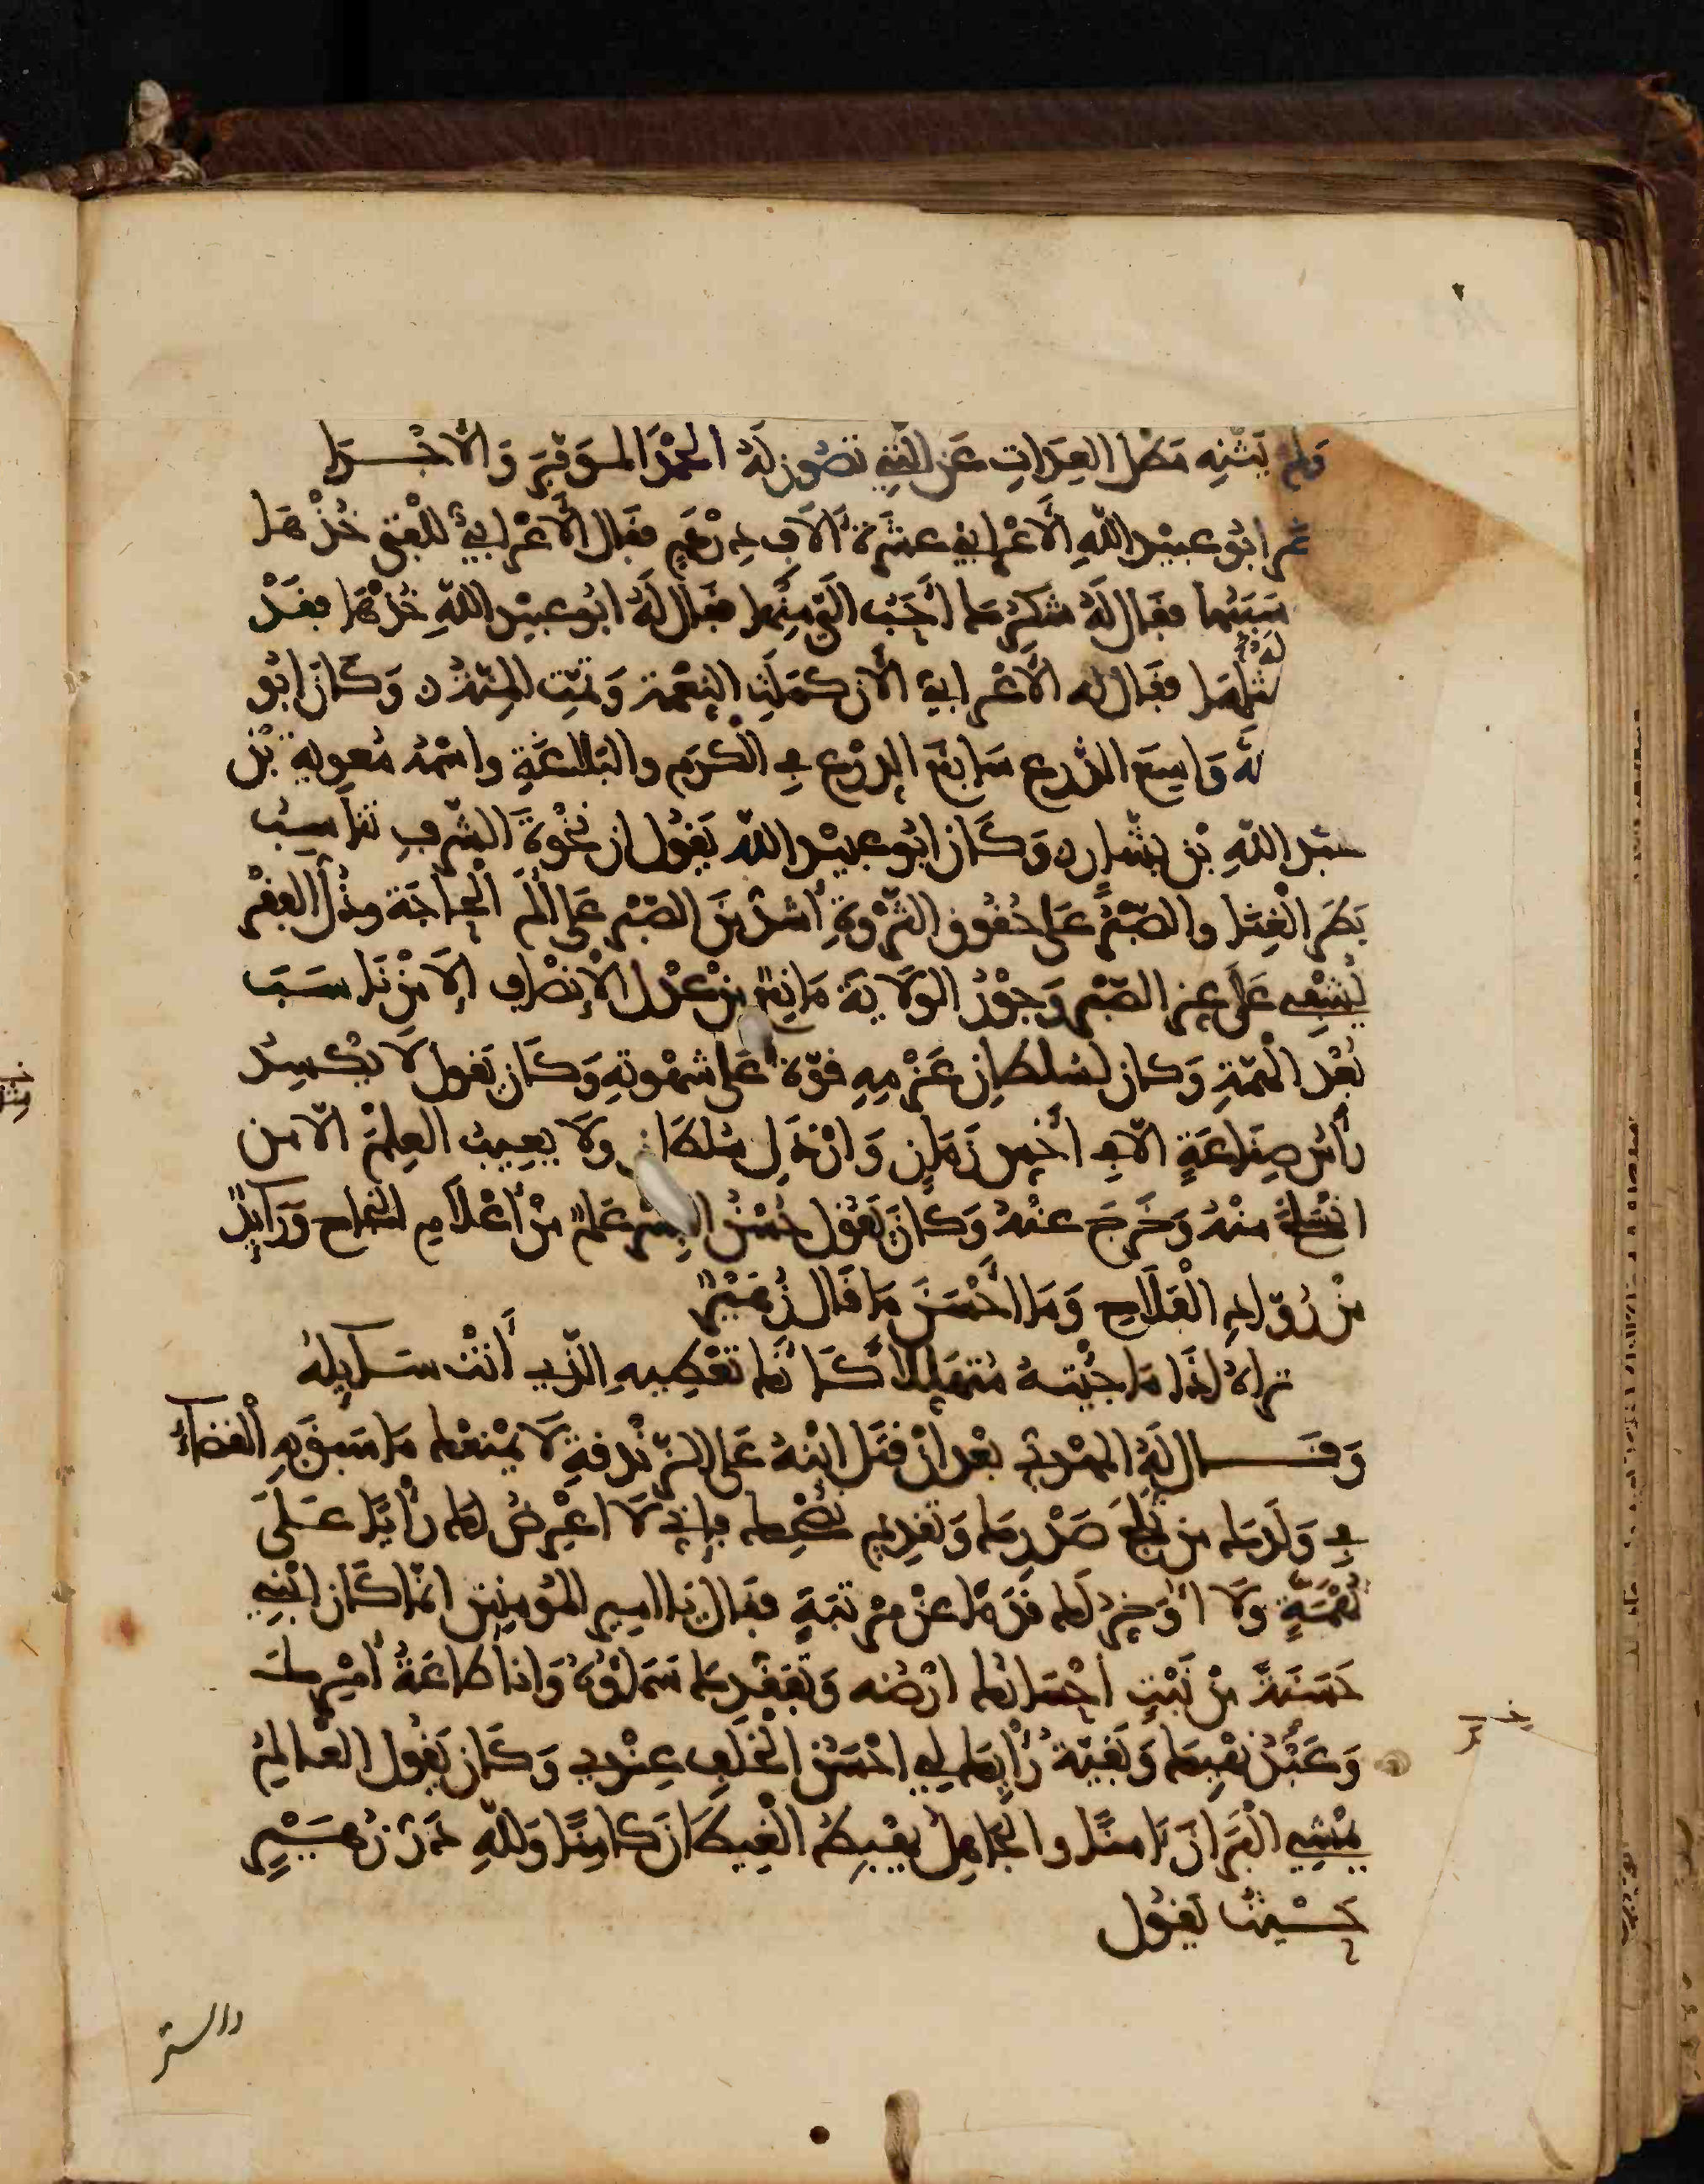 ولم يثنه مطل العدات عن التي تصون له الحمد الموفر والاجرا
ابو عبيد الله الاعرابي عشرة الاف درهم فقال الاعرابي للفتى خذها
سببها فقال له شكرك احب الي منها فقال له ابو عبيد الله خذها فقد
له بمثلها فقال له الاعرابي الان كملت النعمة وتمت المنة وكان ابو
الله واسع الذرع سابغ الدرع في الكرم والبلاغة واسمه معوية بن
عبد الله بن يسار وكان ابو عبيد الله يقول ان نخوة الشرف تناسب
بطر الغنا والصبر على حقوق الثروة اشد من الصبر على الم الحاجة وذل الفقر
يسعى على عز الصبر وجور الولاية مانع من عدل الانصاف الا من ناسب
بعد الهمة وكان لسلطان عزمه قوة على شهوته وكان يقول لا يكسر
رأس صناعة الا في اخس زمان وارذل سلطان ولا يعيب العلم الا من
انسلخ منه وخرج عنه وكان يقول حسن البشر علم من أعلام النجاح ورائد
من رواد الفلاح وما احسن ما قال زهير
تراه اذا ما جئته متهللا كأنك تعطيه الذي أنت سائله
وقال له المهدي بعد ان قتل ابنه على الزندقة لا يمنعك ما سبق به القضاء
في ولدك من ثلج صدرك وتقديم نصحك فاني لا اعرض لك رأيا على
تهمة ولا اؤخر لك قدما عن مرتبة فقال يا امير المؤمنين انما كان ابني
حسنة من نبت احسانك ارضه وتفقدك سماؤه وانا طاعة أمرك
وعبد نهيك وبقية رأيك لي احسن الخلف عندي وكان يقول العالم
يمشي البراز امنا والجاهل يهبط الغيطان كامنا ولله در زهير
حيث يقول
والستر